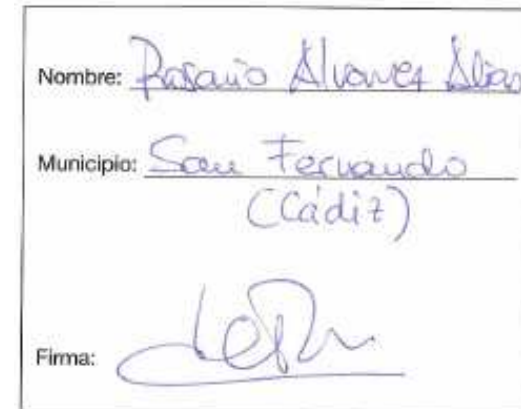 Nombre: Rosario Alvarez Alias
Municipio: San Fernando
(Cádiz)
Firma: